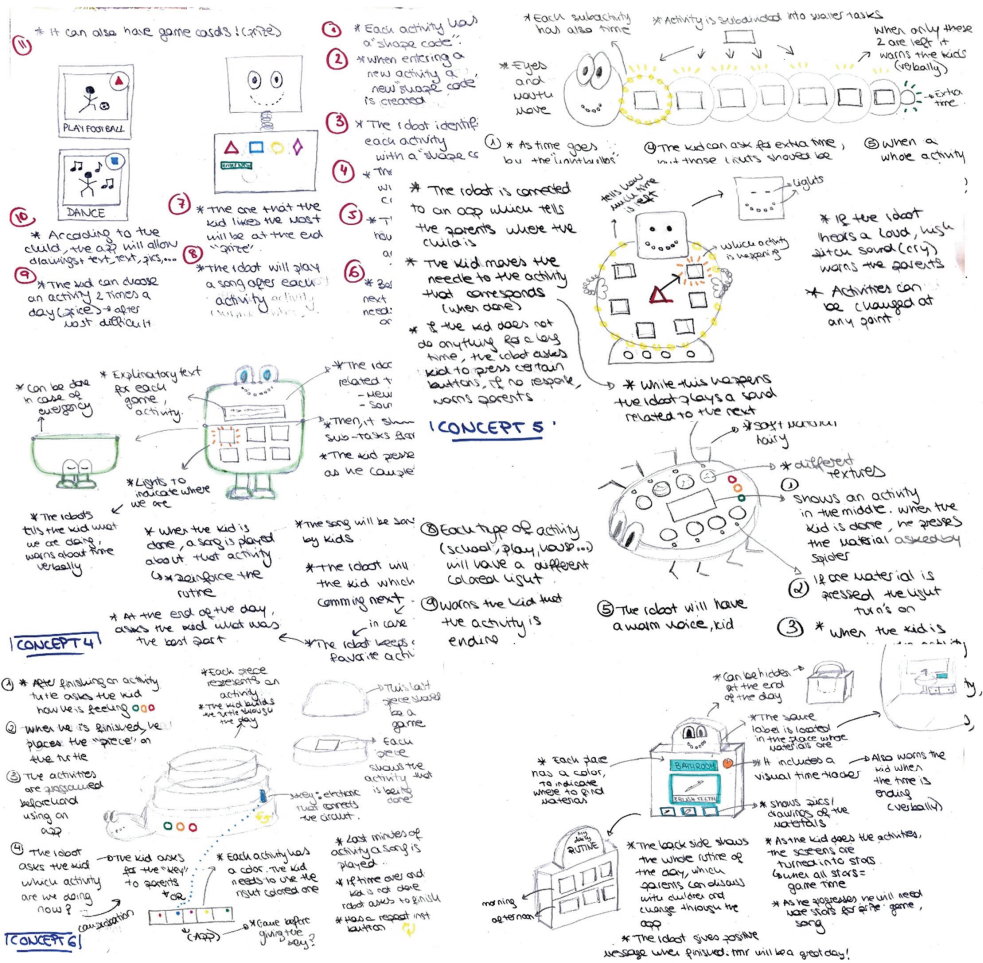 11
* It can also have game cards! (prize)
PLAY FOOTBALL
DANCE
10
* According to the
child, the app will allow
drawings + text, text, pics,...
9
* The kid can choose
an activity 2 times a
day (price) → after
most difficult
7
* The one that the
kid likes the most
will be at the end
"prize".
8
* The robot will play
a song after each
activity
1
* Each activity has
a "shape code".
2
* When entering a
new activity a
new "shape code"
is created
3
* The robot identifi
each activity
with a "shape co
4
5
6
next
* Each subactivity
has also time
* Activity is subdivided into smaller tasks
When only these
2 are left it
warns the kids
(verbally)
* Eyes
and
mouth
move
* Extra
time
1 * As time goes
4 The kid can ask for extra time,
5 When a
whole activity
* The robot is connected
to an app which tells
the parents where the
child is
* The kid moves the
needle to the activity
that corresponds
(when done)
* If the kid does not
do anything for a long
time, the robot asks
kid to press certain
buttons, if no response,
warns parents
tells how
much time
is left
lights
which activity
is happening
* If the robot
hears a loud, high
pitch sound (cry)
warns the parents
* Activities can
be changed at
any point.
* While this happens
the robot plays a sand
related to the next
CONCEPT 5
* Can be done
in case of
emergency
* Explinatory text
for each
game,
activity.
* The robo
related t
* Then, it show
sub-tasks
* The kid presse
as he complet
* Lights to
indicate where
we are
* The robots
tells the kid what
we are doing,
warns about time
verbally
* When the kid is
done, a song is played
about that activity
↳ * Reinforce the
rutine
* At the end of the day,
asks the kid what was
the best part
* The song will be
by kids
* The robot will
the kid which
comming next
in case
* The robot keeps
favorite acti
CONCEPT 4
8 Each type of activity
(school, play, house...)
will have a different
colored light
9 Warns the kid that
the activity is
ending
* different
textures
1
shows an activity
in the middle. When the
kid is done, he presses
the material asked by
spider
2 If one material is
pressed the light
turn's on
5 The robot will have
a warm voice, kid
3 * When the kid is
1 * After finishing an activity
turtle asks the kid
how he is feeling
2 When he is finished, he
places the "piece" on
the turtle
3 The activities
are programmed
beforehand
using an
app
4 The robot
asks the kid
which activity
are we doing
now?
conversation
* Each piece
represents an
activity
* The kid builds
the turtle through
the day
This last
piece should
be a
game
Each
piece
shows the
activity that
is being
done
* Key: electronic
that connects
the circuit.
The kid asks
for the "key"
to parents
OR
(App)
* Each activity has
a color. The kid
needs to use the
right colored one
* Game before
giving the
key?
* Last minutes of
activity a song is
played
* If time over and
kid is not done
robot asks to finish
* Has a repeat inst
button
CONCEPT 6
* Can be hidden
at the end
of the day
* The same
label is located
in the place where
materials are
* It includes a
visual time tracker
Also warns the
kid when
the time is
ending
(verbally)
* Each place
has a color,
to indicate
where to find
materials
BATHROOM
BRUSH TEETH
* Shows pics/
drawings of the
materials
RUTINE
morning
afternoon
* The back side shows
the whole rutine of
the day, which
parents can discuss
with children and
change through the
app
* As the kid does the activities,
the screens are
turned into stars.
↳ when all stars =
game time
* As he progresses he will need
more stars for prize: game,
song
* The robot gives positive
message when finished. tmr will be a great day!